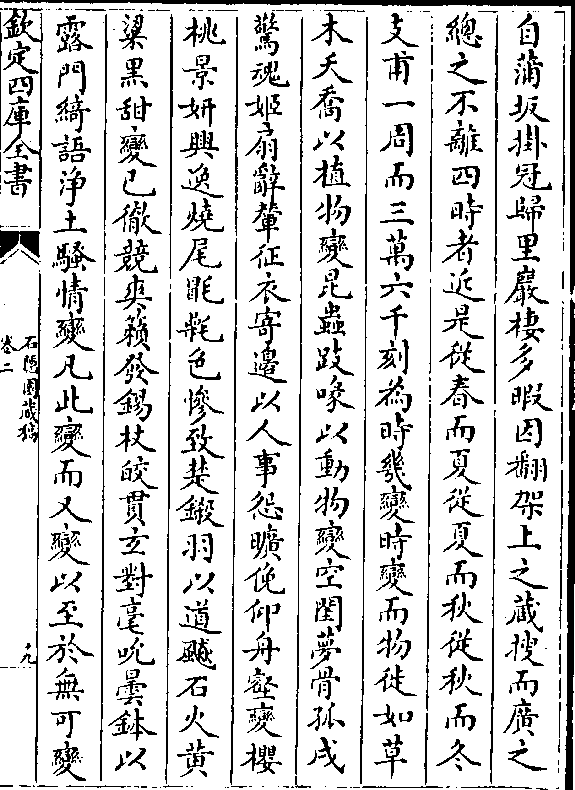 自蒲坂掛冠歸里巖棲多暇因翻架上之藏搜而廣之
總之不離四時者近是從春而夏從夏而秋從秋而冬
支甫一周而三萬六千刻為時幾變時變而物徙如草
木夭喬以植物變昆蟲跂喙以動物變空閨夢骨孤戍
驚魂姬扇辭輦征衣寄邊以人事怨曠俛仰舟壑變櫻
桃景妍興逸燒尾毷氉色慘致楚鎩羽以道颷石火黄
粱黒甜變已徹競爽籟發錫杖皎貫玄對毫吮曇鉢以
露門綺語淨土騷情變凡此變而又變以至於無可變
欽定四庫全書
石隱園藏稿
卷二
十九